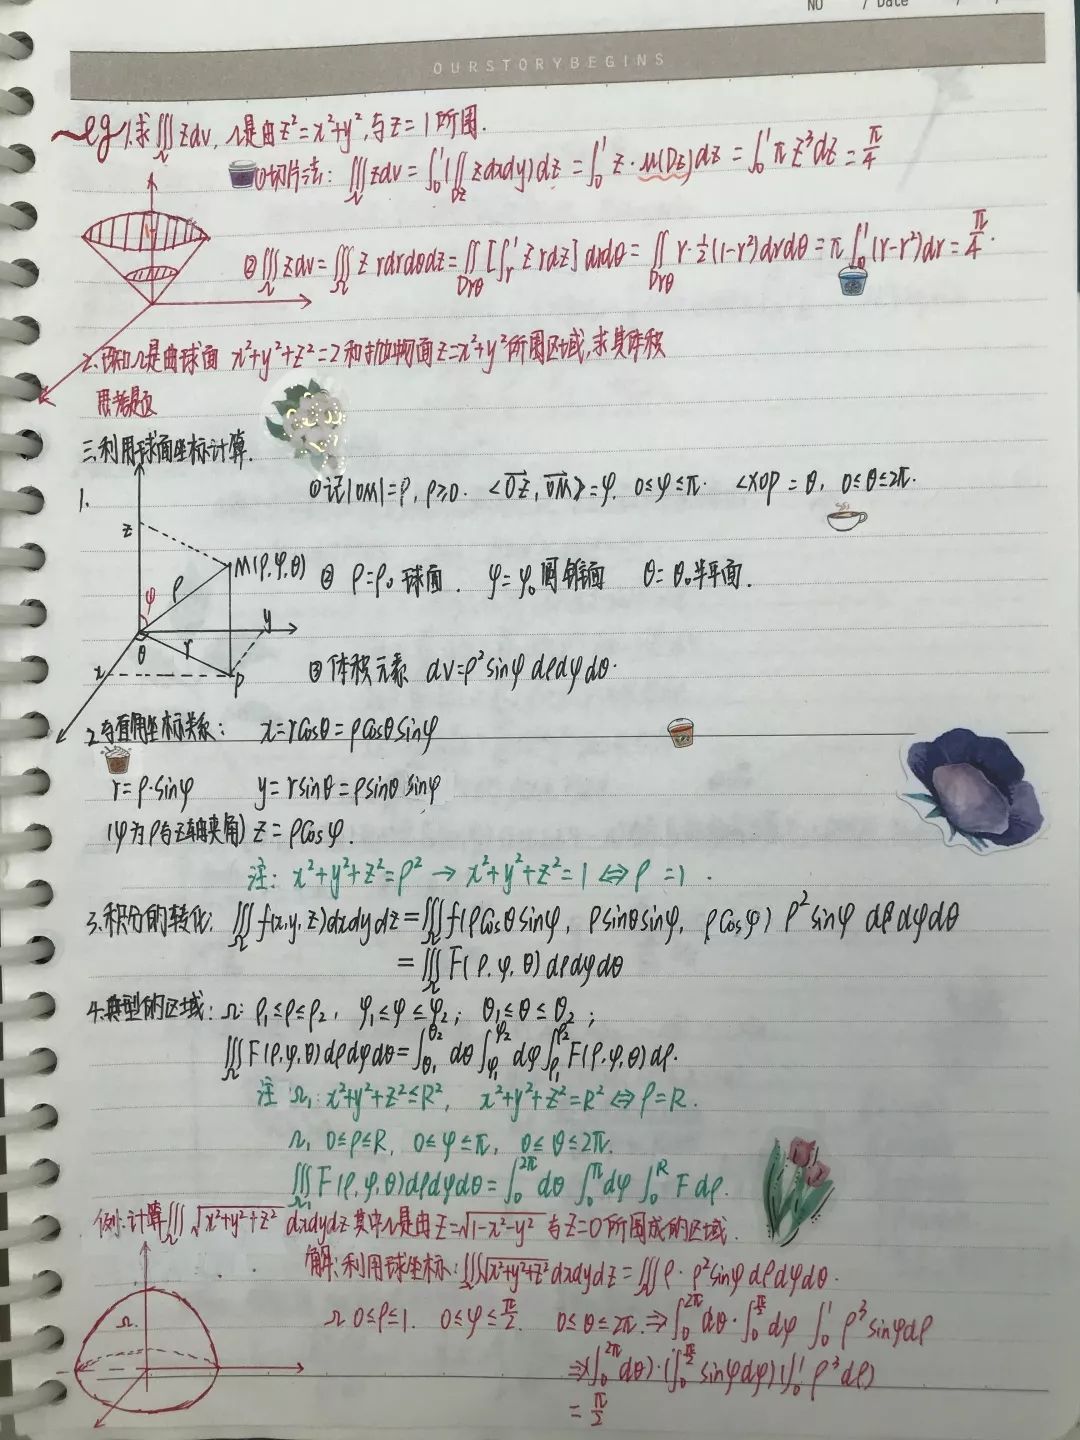 NO / Date / /
OURSTORYBEGINS
eg 1.求∭_Ω zdv, Ω是由z²=x²+y²,与z=1所围.
①切片法: ∭_Ω zdv=∫₀¹(∬_Dz zdxdy)dz=∫₀¹ z·μ(Dz)dz=∫₀¹πz³dz=π/4
②∭_Ω zdv=∭_Ω z rdrdθdz=∬_Drθ[∫_r¹ z rdz]drdθ=∬_Drθ r·½(1-r²)drdθ=π∫₀¹(r-r²)dr=π/4.
2.已知Ω是由球面 x²+y²+z²=2和抛物面z=x²+y²所围区域,求其体积
思考题
三.利用球面坐标计算.
1.
①记|OM|=ρ, ρ≥0. <OZ, OM>=φ, 0≤φ≤π. <XOP=θ, 0≤θ≤2π.
z
M(ρ,φ,θ)
②ρ=ρ₀球面. φ=φ₀圆锥面 θ=θ₀半平面.
φ ρ
y
θ r
x P
③体积元素 dv=ρ²sinφ dρdφdθ.
2.与直角坐标关系: x=rcosθ=ρcosθsinφ
r=ρ·sinφ y=rsinθ=ρsinθ sinφ
(φ为ρ与z轴夹角) z=ρcosφ.
注: x²+y²+z²=ρ² → x²+y²+z²=1⇔ρ=1.
3.积分的转化: ∭_Ω f(x,y,z)dxdydz=∭_Ω f(ρcosθsinφ, ρsinθsinφ, ρcosφ) ρ²sinφ dρdφdθ
=∭_Ω F(ρ,φ,θ)dρdφdθ
4.典型的区域: Ω: ρ₁≤ρ≤ρ₂, φ₁≤φ≤φ₂; θ₁≤θ≤θ₂;
∭_Ω F(ρ,φ,θ)dρdφdθ=∫_θ₁^θ₂ dθ∫_φ₁^φ₂ dφ∫_ρ₁^ρ₂ F(ρ,φ,θ)dρ.
注 Ω₁: x²+y²+z²≤R², x²+y²+z²=R²⇔ρ=R.
Ω₁ 0≤ρ≤R, 0≤φ≤π, 0≤θ≤2π.
∭_Ω₁ F(ρ,φ,θ)dρdφdθ=∫₀^2π dθ ∫₀^π dφ ∫₀^R F dρ.
例:计算∭_Ω √(x²+y²+z²) dxdydz 其中Ω是由z=√(1-x²-y²)与z=0所围成的区域.
解:利用球坐标:∭_Ω√(x²+y²+z²)dxdydz=∭_Ω ρ·ρ²sinφdρdφdθ.
Ω
Ω 0≤ρ≤1. 0≤φ≤π/2. 0≤θ≤2π.⇒∫₀^2π dθ·∫₀^π/2 dφ ∫₀¹ ρ³sinφdρ
⇒(∫₀^2π dθ)·(∫₀^π/2 sinφdφ)(∫₀¹ρ³dρ)
=π/2